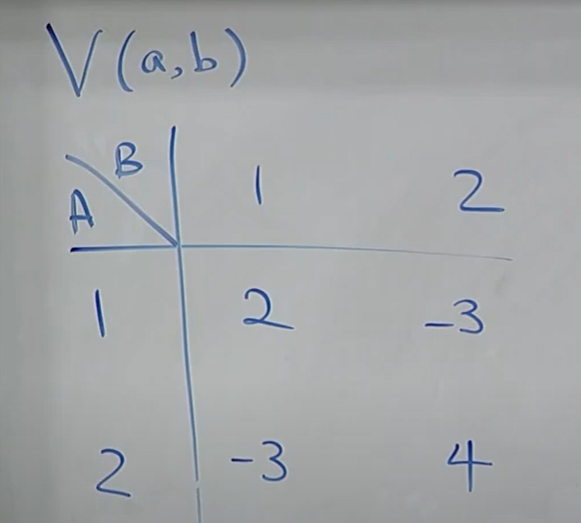 V(a,b)
B
A 1 2
1 2 -3
2 -3 4